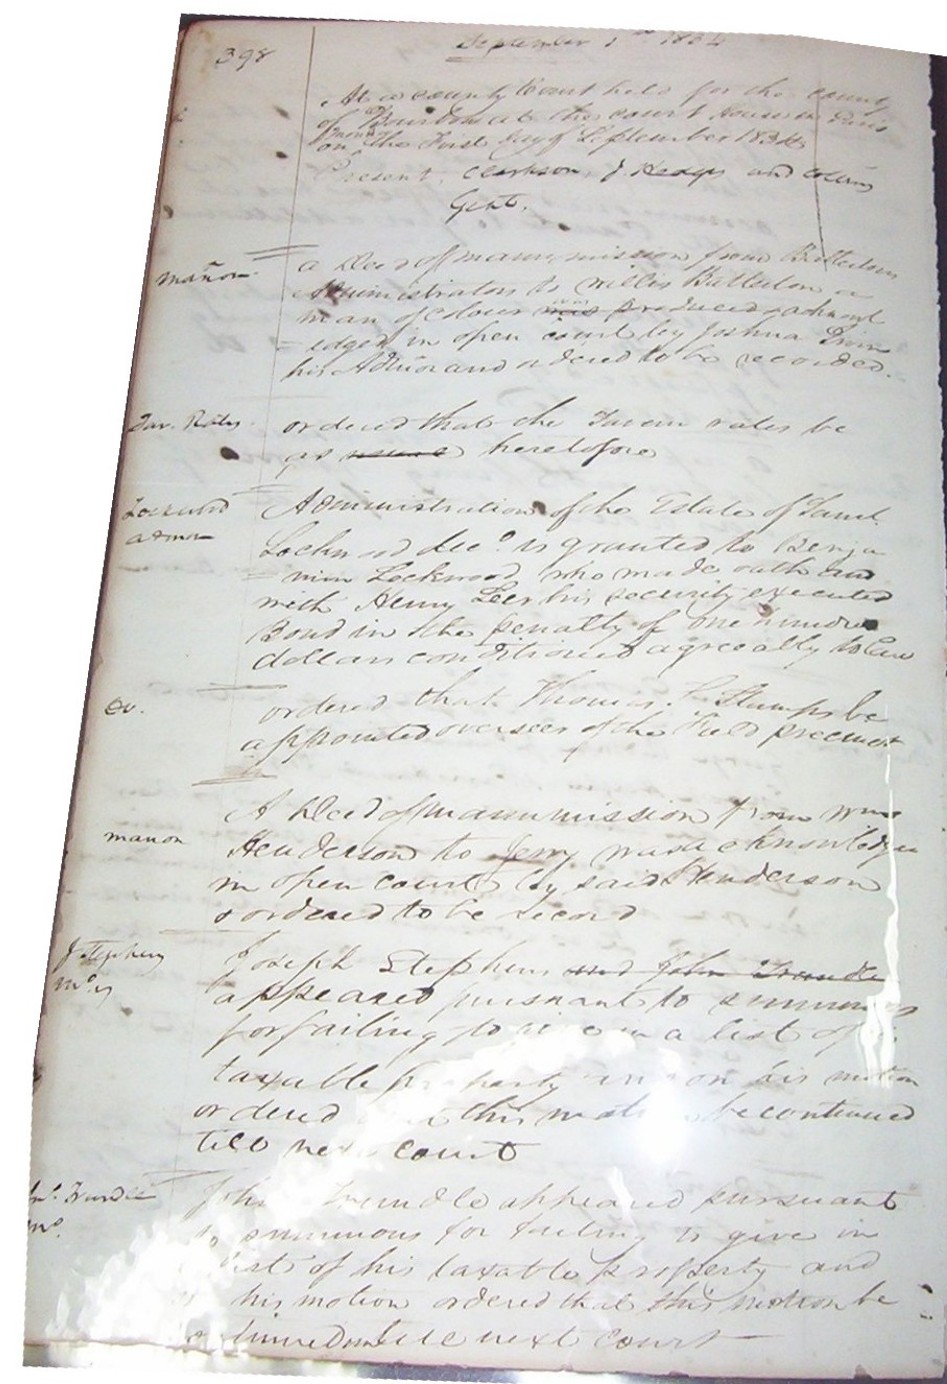 398
September 1st 1834
At a county Court held for the county
of Bourbon at the court house in Paris
on monday the First day of September 1834
Present, Clarkson, J Hedges and Collins
Gent.
manon
a Deed of manumission from Battertons
Administrators to Willis Batterton a
man of colour was produced & acknowl
=edged in open court by Joshua Irvin
his Admor and ordered to be recorded.
Tav. Rates
ordered that the Tavern rates be
as heretofore
Lockwood
admor
Administration of the Estate of Saml.
Lockwood decd. is granted to Benja
=min Lockwood, who made oath and
with Henry Lees his security executed
Bond in the penalty of one hundred
dollars conditioned agreeably to Law
ov.
ordered that Thomas Stamps be
appointed overseer of the Field precinct
manon
A Deed of manumission from Wm
Henderson to Jerry was acknowledged
in open court by said Henderson
& ordered to be record
J Stephens
mo.
Joseph Stephens and John Trundle
appeared pursuant to summons
for failing to give in a list of his
taxable property and on his motion
ordered that this motion be continued
till next court
Jno. Trundle
mo.
John Trundle appeared pursuant
to summons for failing to give in
list of his taxable property and
his motion ordered that this motion be
continued untill next court